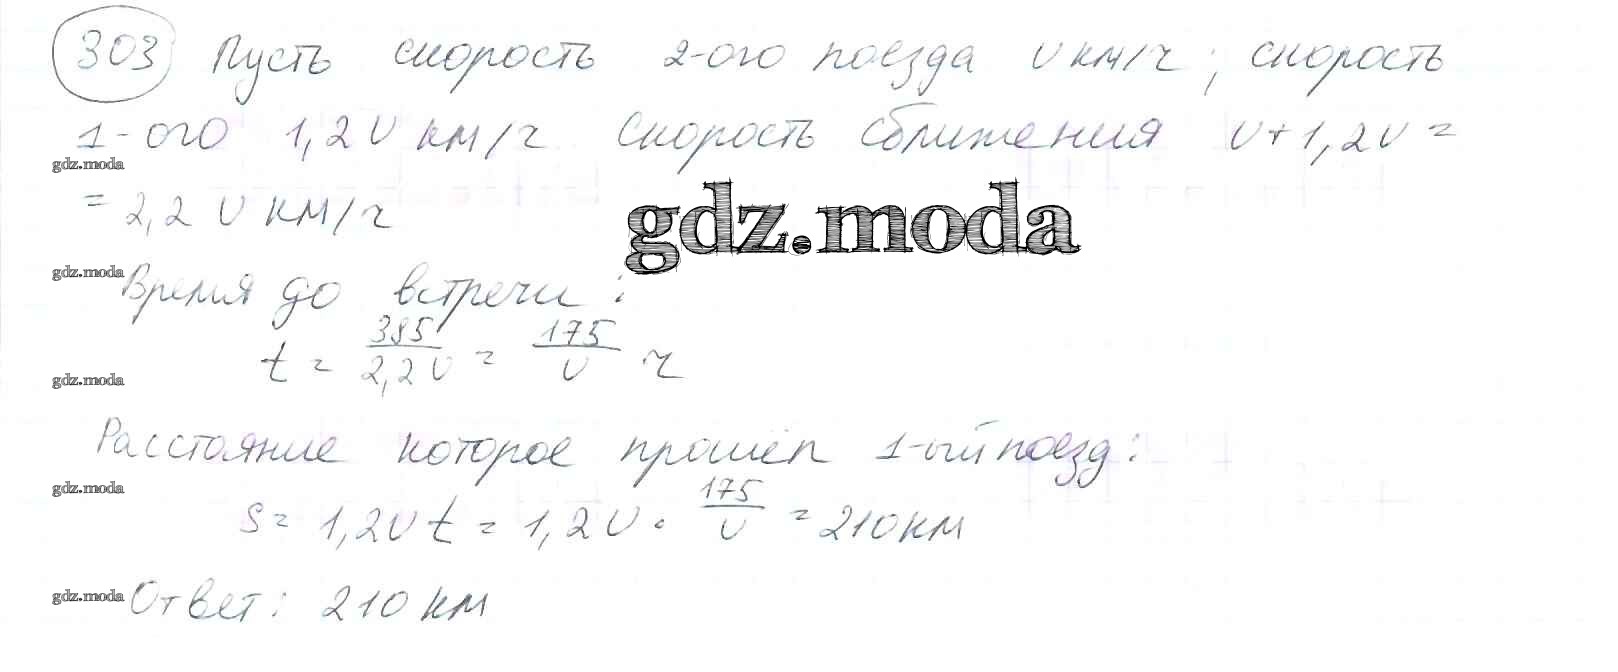 303 Пусть скорость 2-ого поезда υ км/ч; скорость
1-ого 1,2υ км/ч Скорость сближения υ+1,2υ=
gdz.moda
=2,2 υ км/ч
gdz.moda
gdz.moda Время до встречи:
t = 385/2,2υ = 175/υ ч
gdz.moda
Расстояние которое прошёл 1-ый поезд:
gdz.moda
S= 1,2υt = 1,2υ · 175/υ = 210км
gdz.moda Ответ: 210 км